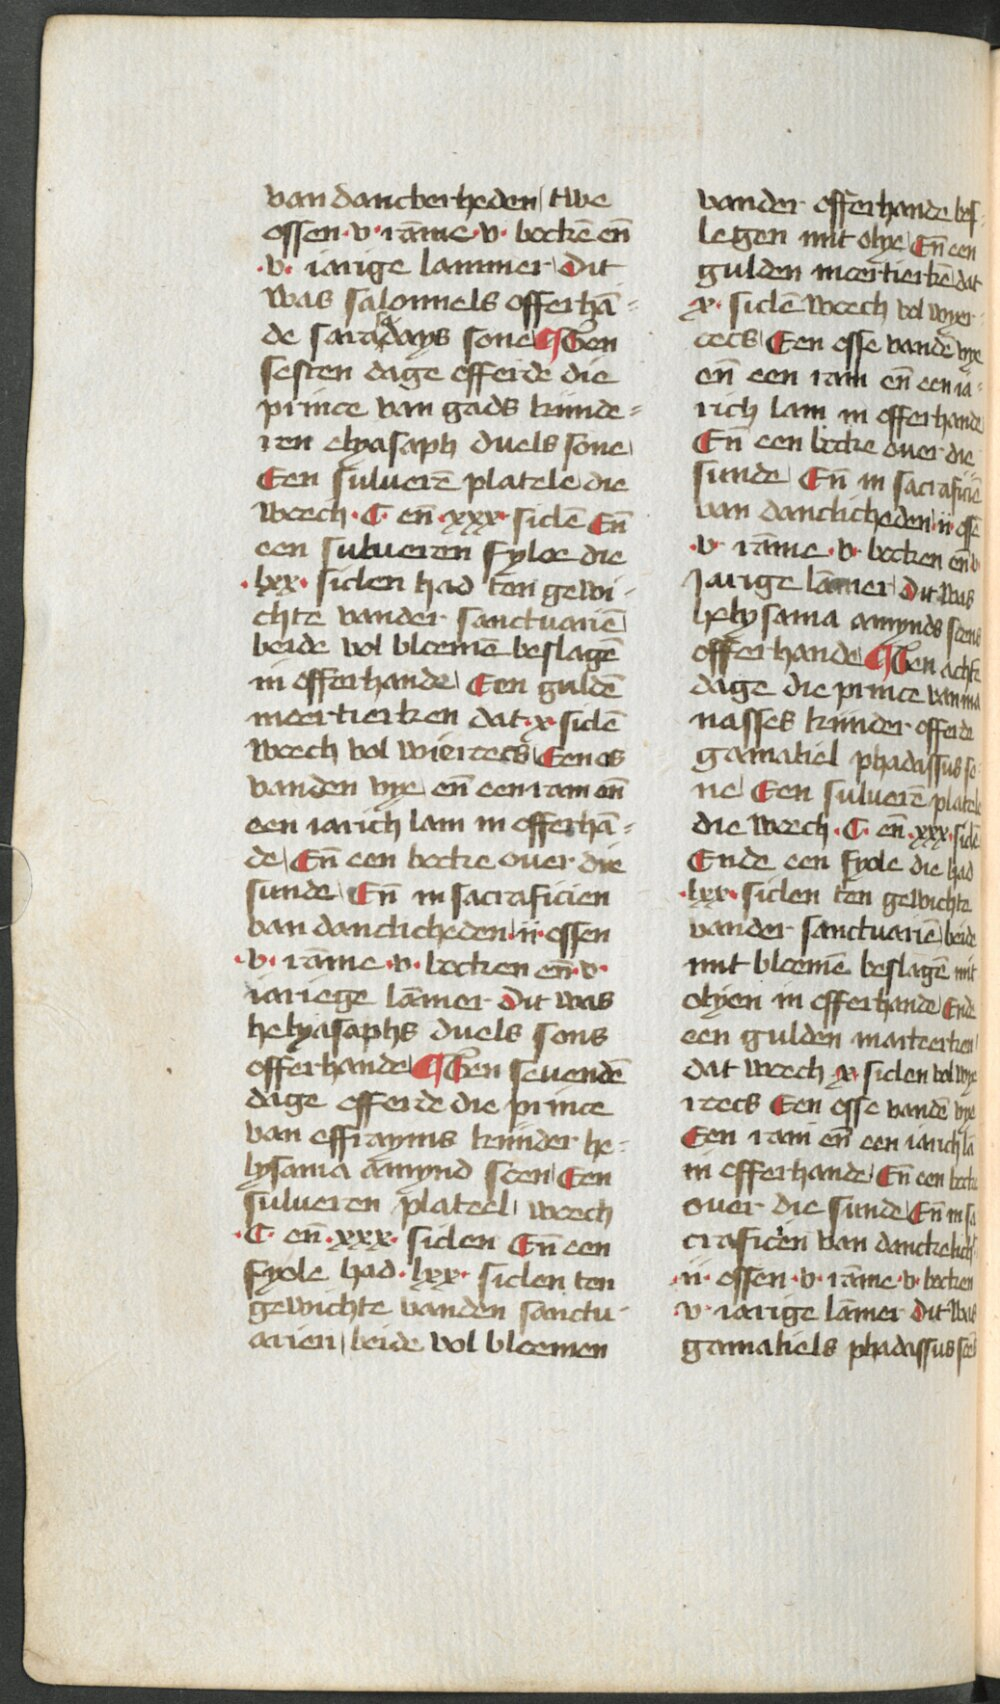 van dancberheden twe
ossen ·v· rām̄e ·v· bockē en̄
·v· iarige lammer Dit
was salomiels offerhā=
de saradays sone ¶ Ten
sesten dage offerde die
prince van gads kinde=
ren elyasaph duels sone
Een sulverē platele die
woech ·C· en̄ ·xxx· siclē En̄
een sulueren fyole die
·lxx· siclen had ten gewi-
chte vander sanctuariē
beide vol bloemē beslagē
in offerhande Een guldē
moertierken dat ·x· siclē
woech vol wierrecs Een os
vanden vye en̄ een ram en̄
een iarich lam in offerhā=
de En̄ een bocke ouer die
sunde En̄ in sacraficien
van danclicheden ·ii· ossen
·v· rām̄e ·v· bocken en̄ ·v·
iariege lām̄er Dit was
helyasaphs duels sons
offerhande ¶ Ten seuendē
dage offerde die prince
van effrayms kinder he=
lysama amynd soen Een
sulueren plateel woech
·C· en̄ ·xxx· siclen En̄ een
fyole had ·lxx· siclen ten
gewichte vanden sanctu-
arien beide vol bloemen
vander offerhande bes=
legen mit olye En̄ een
gulden moertierkē dat
·x· siclē woech vol wyer
recs Een osse vandē vye
en̄ een ram en̄ een ia=
rich lam in offerhande
En̄ een bocke ouer die
sunde En̄ in sacraficiē
van danclicheden ·ii· ossē
·v· rām̄e ·v· bocken en̄ v
Jarige lām̄er Dit was
helysama amynds soens
offerhande ¶ Ten achtē
dage die prince van ma
nasses kinder offerde
gamaliel phadassus so
ne Een suluerē platele
die woech ·C· en̄ ·xxx· siclē
Ende een fyole die had
·lxx· siclen ten gewichte
vander sanctuariē beide
mit bloemē beslagē mit
olyen in offerhande Ende
een gulden morteerken
dat woech ·x· siclen vol wye
rrecs Een osse vandē vye
Een ram en̄ een iarich lā
in offerhande En̄ een bocke
ouer die sunde En̄ in sa
craficien van danckelich
·ii· ossen ·v· rām̄e ·v· bocken
·v· iarige lām̄er Dit was
gamaliels phadassus soēs